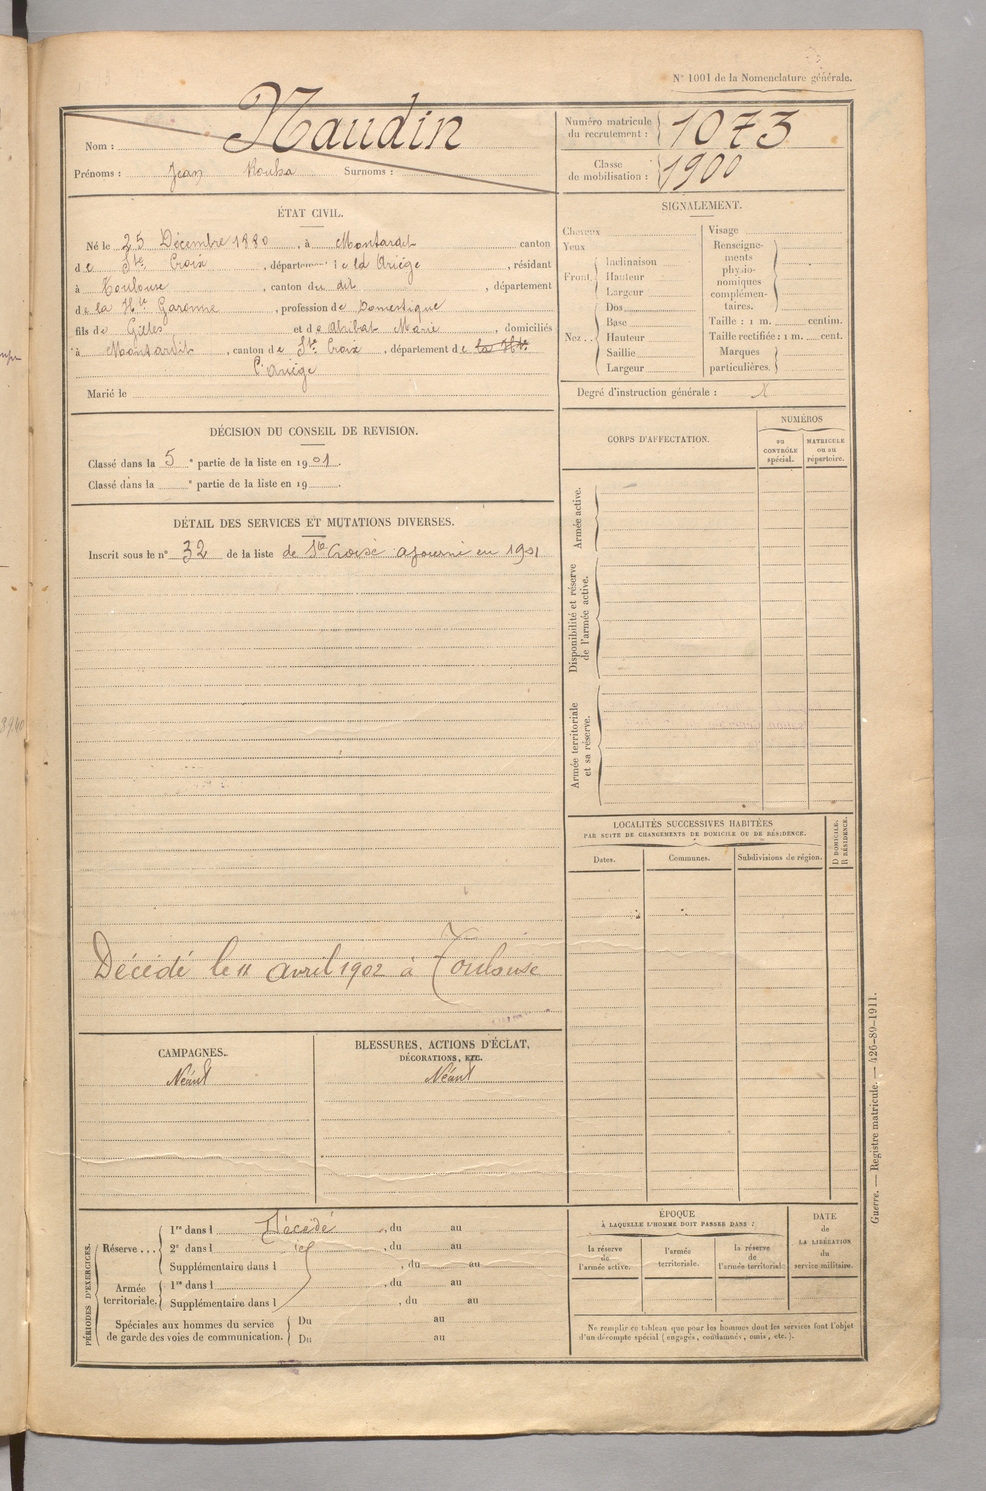 N° 1001 de la Nomenclature générale.
Nom : Naudin
Prénoms : Jean Surnoms :
Numéro matricule du recrutement : 1073
Classe de mobilisation : 1900
ÉTAT CIVIL.
Né le 25 Décembre 1880, à Montardit canton
de Ste Croix, département de la Ariège, résidant
à Toulouse, canton du dit, département
de la Hte Garonne, profession de Domestique
fils de et de Marie, domiciliés
à Montardit, canton de Ste Croix, département de la Hte
l'Ariège
Marié le
SIGNALEMENT.
Cheveux
Yeux
Front
Inclinaison
Hauteur
Largeur
Nez
Dos
Base
Hauteur
Saillie
Largeur
Visage
Renseignements physionomiques complémentaires.
Taille : 1 m. centim.
Taille rectifiée : 1 m. cent.
Marques particulières.
Degré d'instruction générale : X
DÉCISION DU CONSEIL DE REVISION.
Classé dans la 5e partie de la liste en 1901.
Classé dans la e partie de la liste en 19
DÉTAIL DES SERVICES ET MUTATIONS DIVERSES.
Inscrit sous le n° 32 de la liste de Ste Croix ajourné en 1901
Décédé le 11 avril 1902 à Toulouse
CORPS D'AFFECTATION.
NUMÉROS
au CONTRÔLE spécial.
MATRICULE ou au répertoire.
Armée active.
Disponibilité et réserve de l'armée active.
Armée territoriale et sa réserve.
LOCALITÉS SUCCESSIVES HABITÉES
PAR SUITE DE CHANGEMENTS DE DOMICILE OU DE RÉSIDENCE.
Dates.
Communes.
Subdivisions de région.
D DOMICILE.
R RÉSIDENCE.
CAMPAGNES.
Néant
BLESSURES, ACTIONS D'ÉCLAT,
DÉCORATIONS, ETC.
Néant
PÉRIODES D'EXERCICES.
Réserve...
1re dans l Décédé, du au
2e dans l, du au
Supplémentaire dans l, du au
Armée territoriale.
1re dans l, du au
Supplémentaire dans l, du au
Spéciales aux hommes du service
de garde des voies de communication.
Du au
Du au
ÉPOQUE
À LAQUELLE L'HOMME DOIT PASSER DANS :
la réserve de l'armée active.
l'armée territoriale.
la réserve de l'armée territoriale
DATE de LA LIBÉRATION du service militaire.
Ne remplir ce tableau que pour les hommes dont les services font l'objet
d'un décompte spécial (engagés, condamnés, omis, etc.).
Guerre. — Registre matricule. — 426-89-1911.